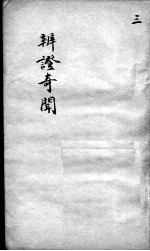 三
辨證奇聞